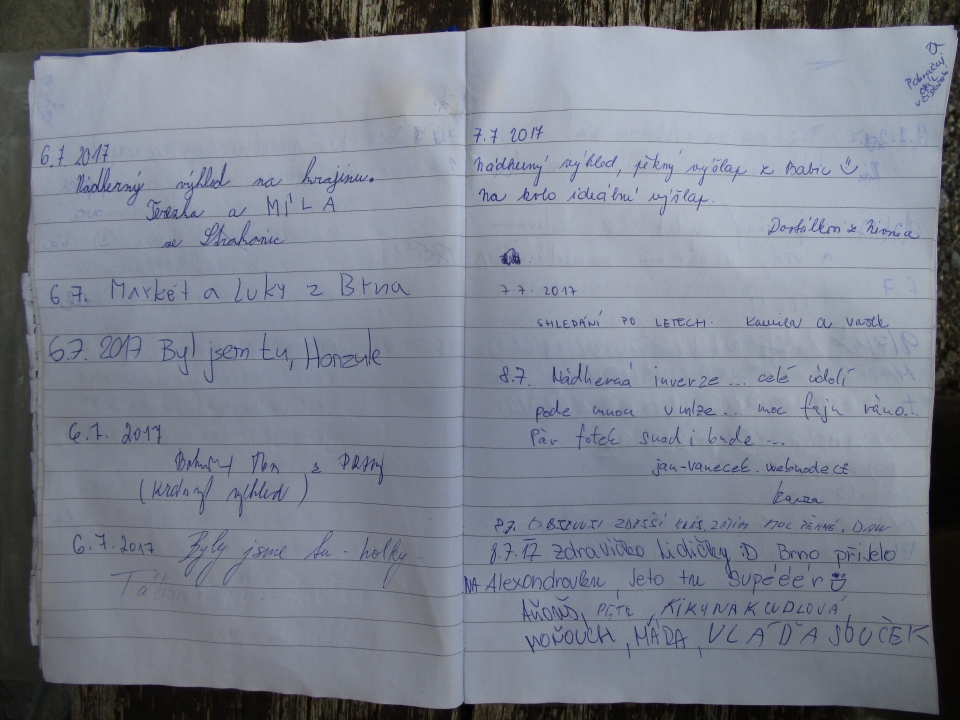 6.7 2017
Nádherný výhled na krajinu.
Terezka a MÍLA
ze Strakonic
6.7. Markét a Luky z Brna
6.7. 2017 Byl jsem tu, Honzule
6.7. 2017
(Krásný výhled)
6.7.2017 Byly jsme tu - holky -
7.7 2017
Nádherný výhled, pěkný výšlap z Babic
Na kolo ideální výšlap.
z
7.7. 2017
SHLEDÁNÍ PO LETECH. Kamila a Vašek
8.7. Nádherná inverze... celé údolí
pode mnou v mlze... moc fajn ráno..
Pár fotek snad i bude...
jan-vanecek.webnode.cz
8.7. OBJEVUJI ZDEJŠÍ KRAJ, ZATÍM MOC PĚKNÉ,
8.7.17 zdravíčko lidičky :D Brno přijelo
NA Alexandrovku jeto tu supééér
KIKYNA KUDLOVÁ,
NOŇOUCH, MÁDA, VLÁĎA SOUČEK